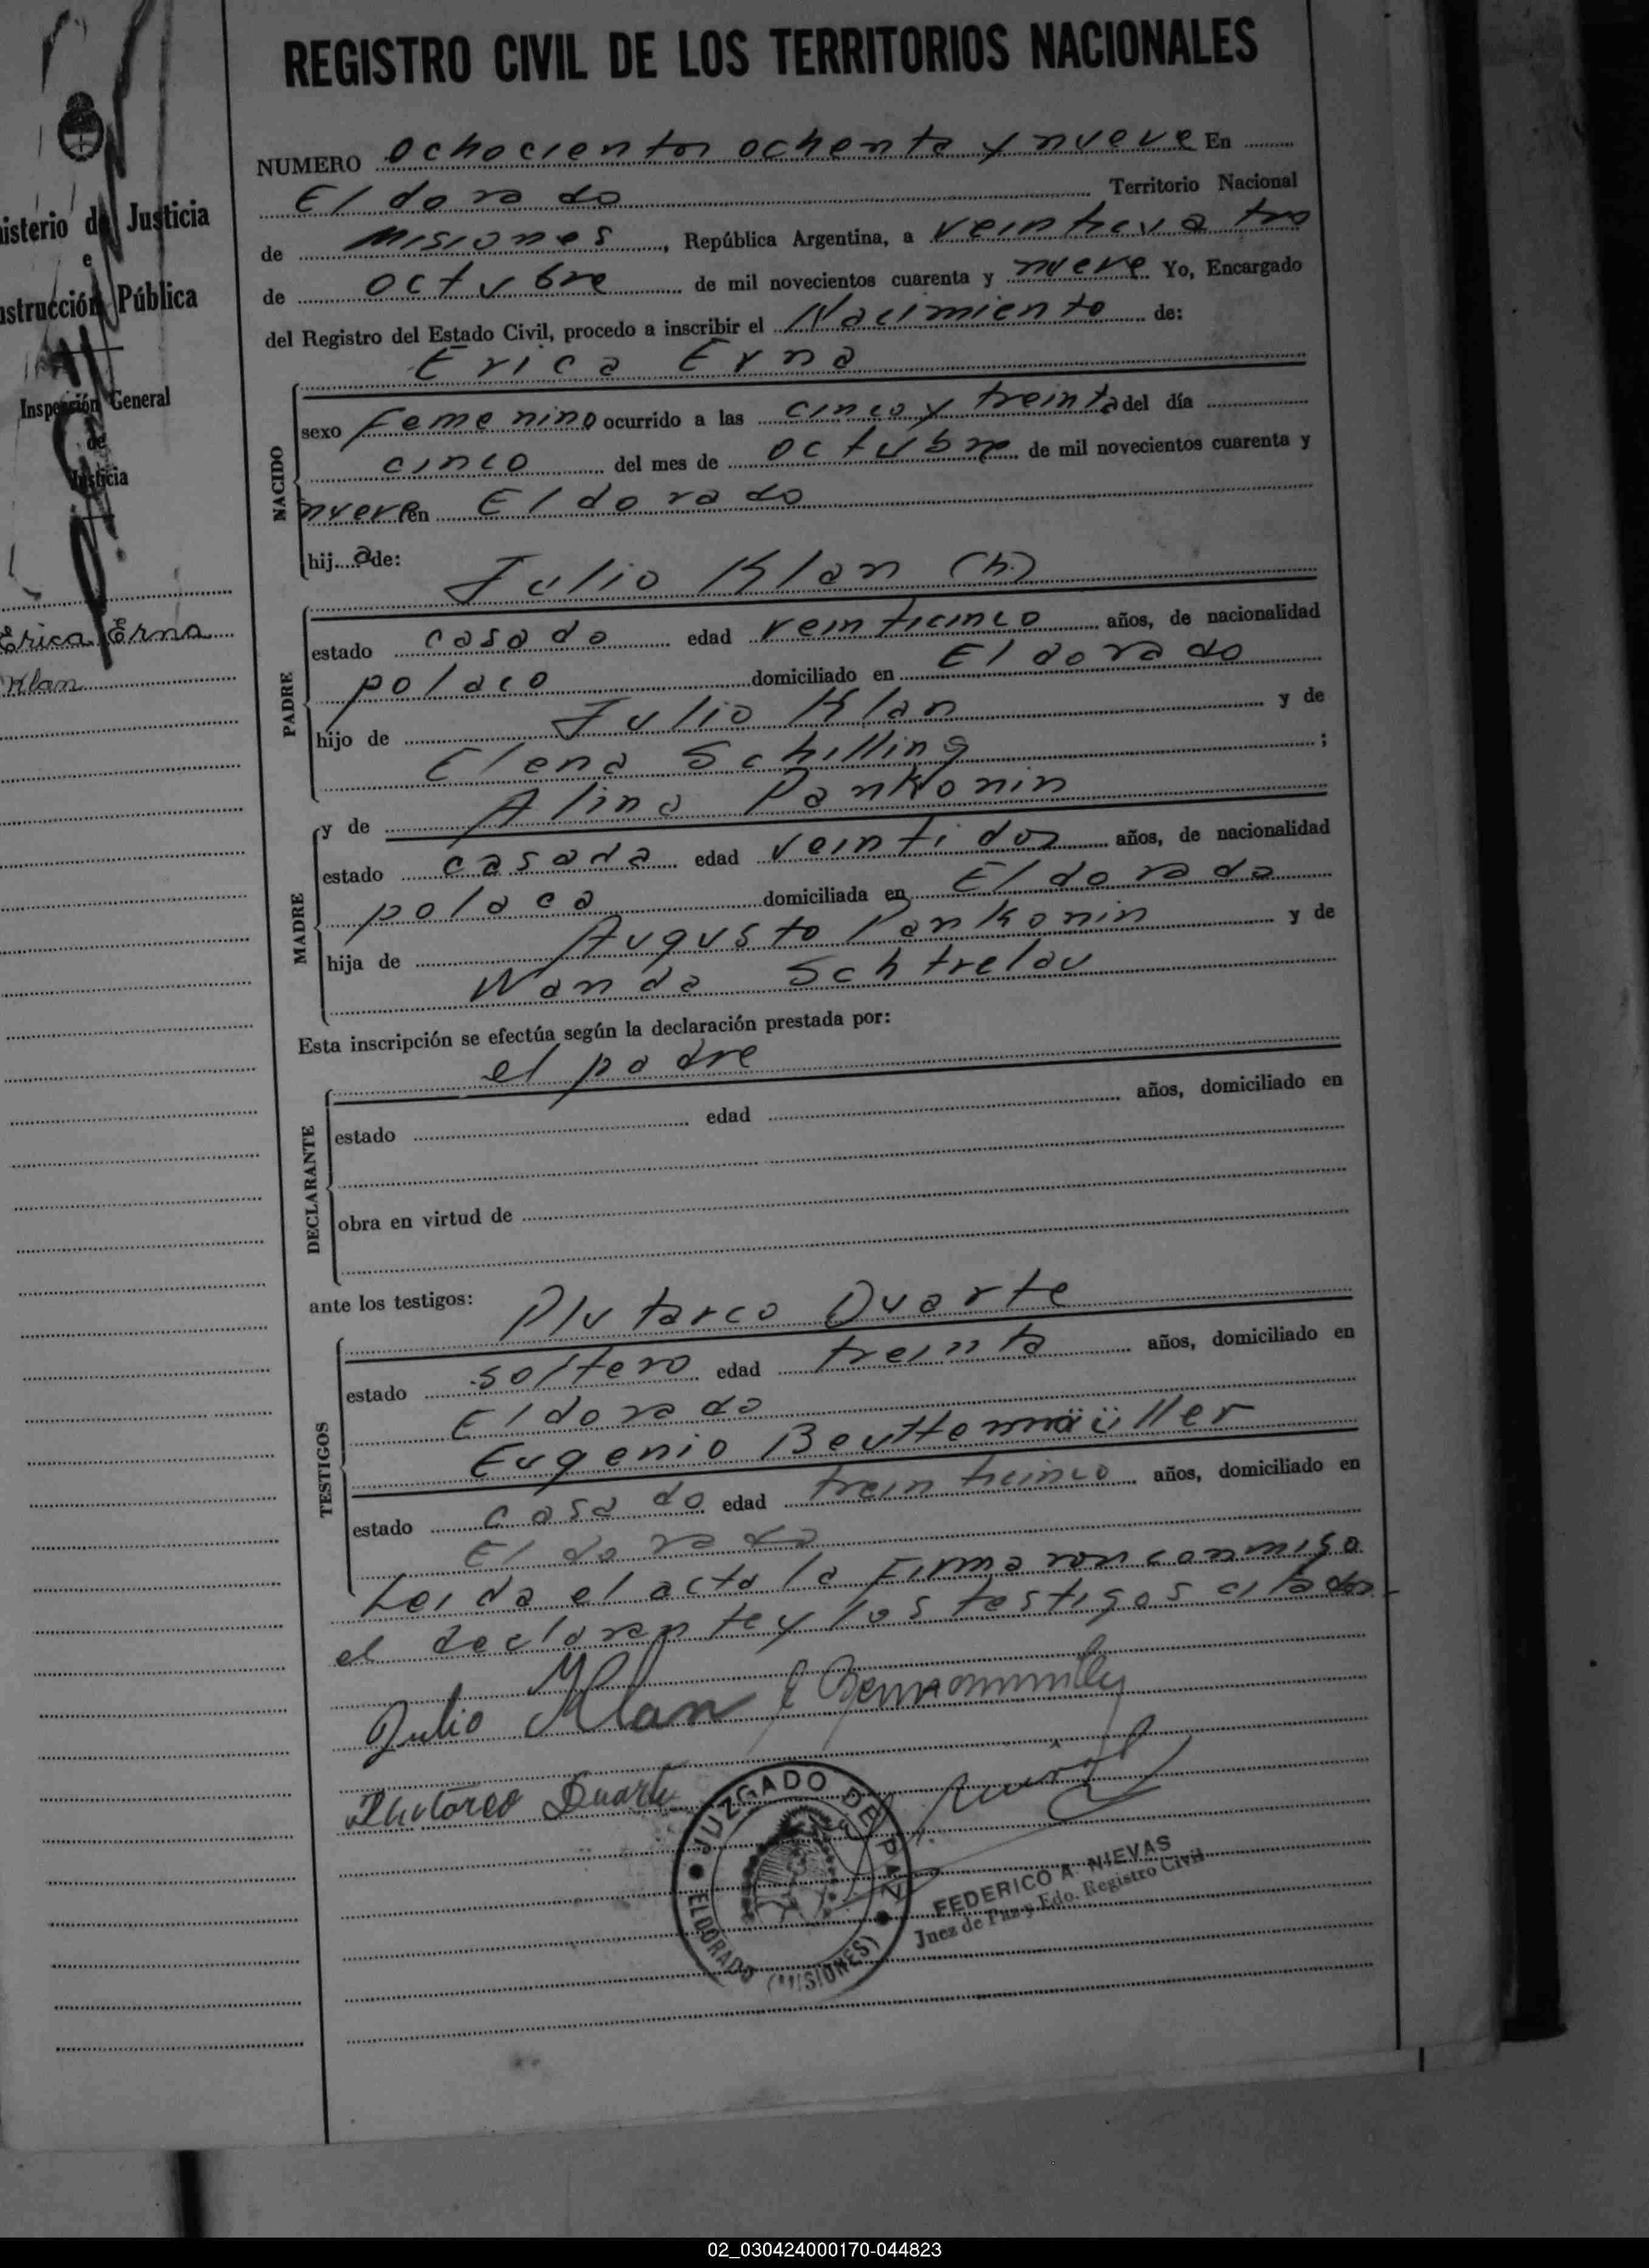 REGISTRO CIVIL DE LOS TERRITORIOS NACIONALES
isterio de Justicia
e
strucción Pública
Inspección General
de
Justicia
Erica Erna
Klan
NUMERO ochocientos ochenta y nueve En
Eldorado Territorio Nacional
de Misiones, República Argentina, a veinticuatro
de octubre de mil novecientos cuarenta y nueve Yo, Encargado
del Registro del Estado Civil, procedo a inscribir el Nacimiento de:
Erica Erna
NACIDO
sexo Femenino ocurrido a las cinco y treinta del día
cinco del mes de octubre de mil novecientos cuarenta y
nueve en Eldorado
hij a de: Julio Klan (h)
PADRE
estado casado edad veinticinco años, de nacionalidad
polaco domiciliado en Eldorado
hijo de Julio Klan y de
Elena Schilling ;
MADRE
y de Alina Pankonin
estado casada edad veintidos años, de nacionalidad
polaca domiciliada en Eldorado
hija de Augusto Pankonin y de
Wanda Schtrelau
Esta inscripción se efectúa según la declaración prestada por:
el padre
DECLARANTE
estado edad años, domiciliado en
obra en virtud de
ante los testigos: Plutarco Duarte
TESTIGOS
estado soltero edad treinta años, domiciliado en
Eldorado
Eugenio
estado casado edad treinticinco años, domiciliado en
Eldorado
Leida el acta la Firmaron conmigo
el declarante y los testigos citados.-
Julio Klan
Plutarco Duarte
JUZGADO DE PAZ
ELDORADO (MISIONES)
FEDERICO A. NIEVAS
Juez de Paz y Edo. Registro Civil
02_030424000170-044823